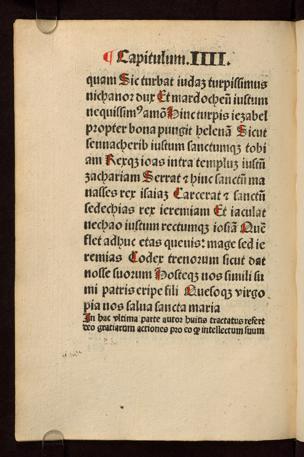 ¶ Capitulum. IIII.
quam Sic turbat iudaz turpissimus
nichanor dux Et mardocheū iustum
nequissim⁹ amō Hinc turpis iezabel
propter bona pungit helenā Sicut
sennacherib iustum sanctumqz tobi
am Rexqz ioas intra templuz iustū
zachariam Serrat ⁊ hinc sanctū ma
nasses rex isaiaz Carcerat ⁊ sanctū
sedechias rex ieremiam Et iaculat
nechao iustum rectumqz iosiā Quē
flet adhuc etas queuis: mage sed ie
remias Codex trenorum sicut dat
nosse suorum Hosteqz nos simili su
mi patris eripe fili Quesoqz virgo
pia nos salua sancta maria
In hac vltima parte autor huius tractatus refert
deo gratiarum actiones pro eo qȝ intellectum suum